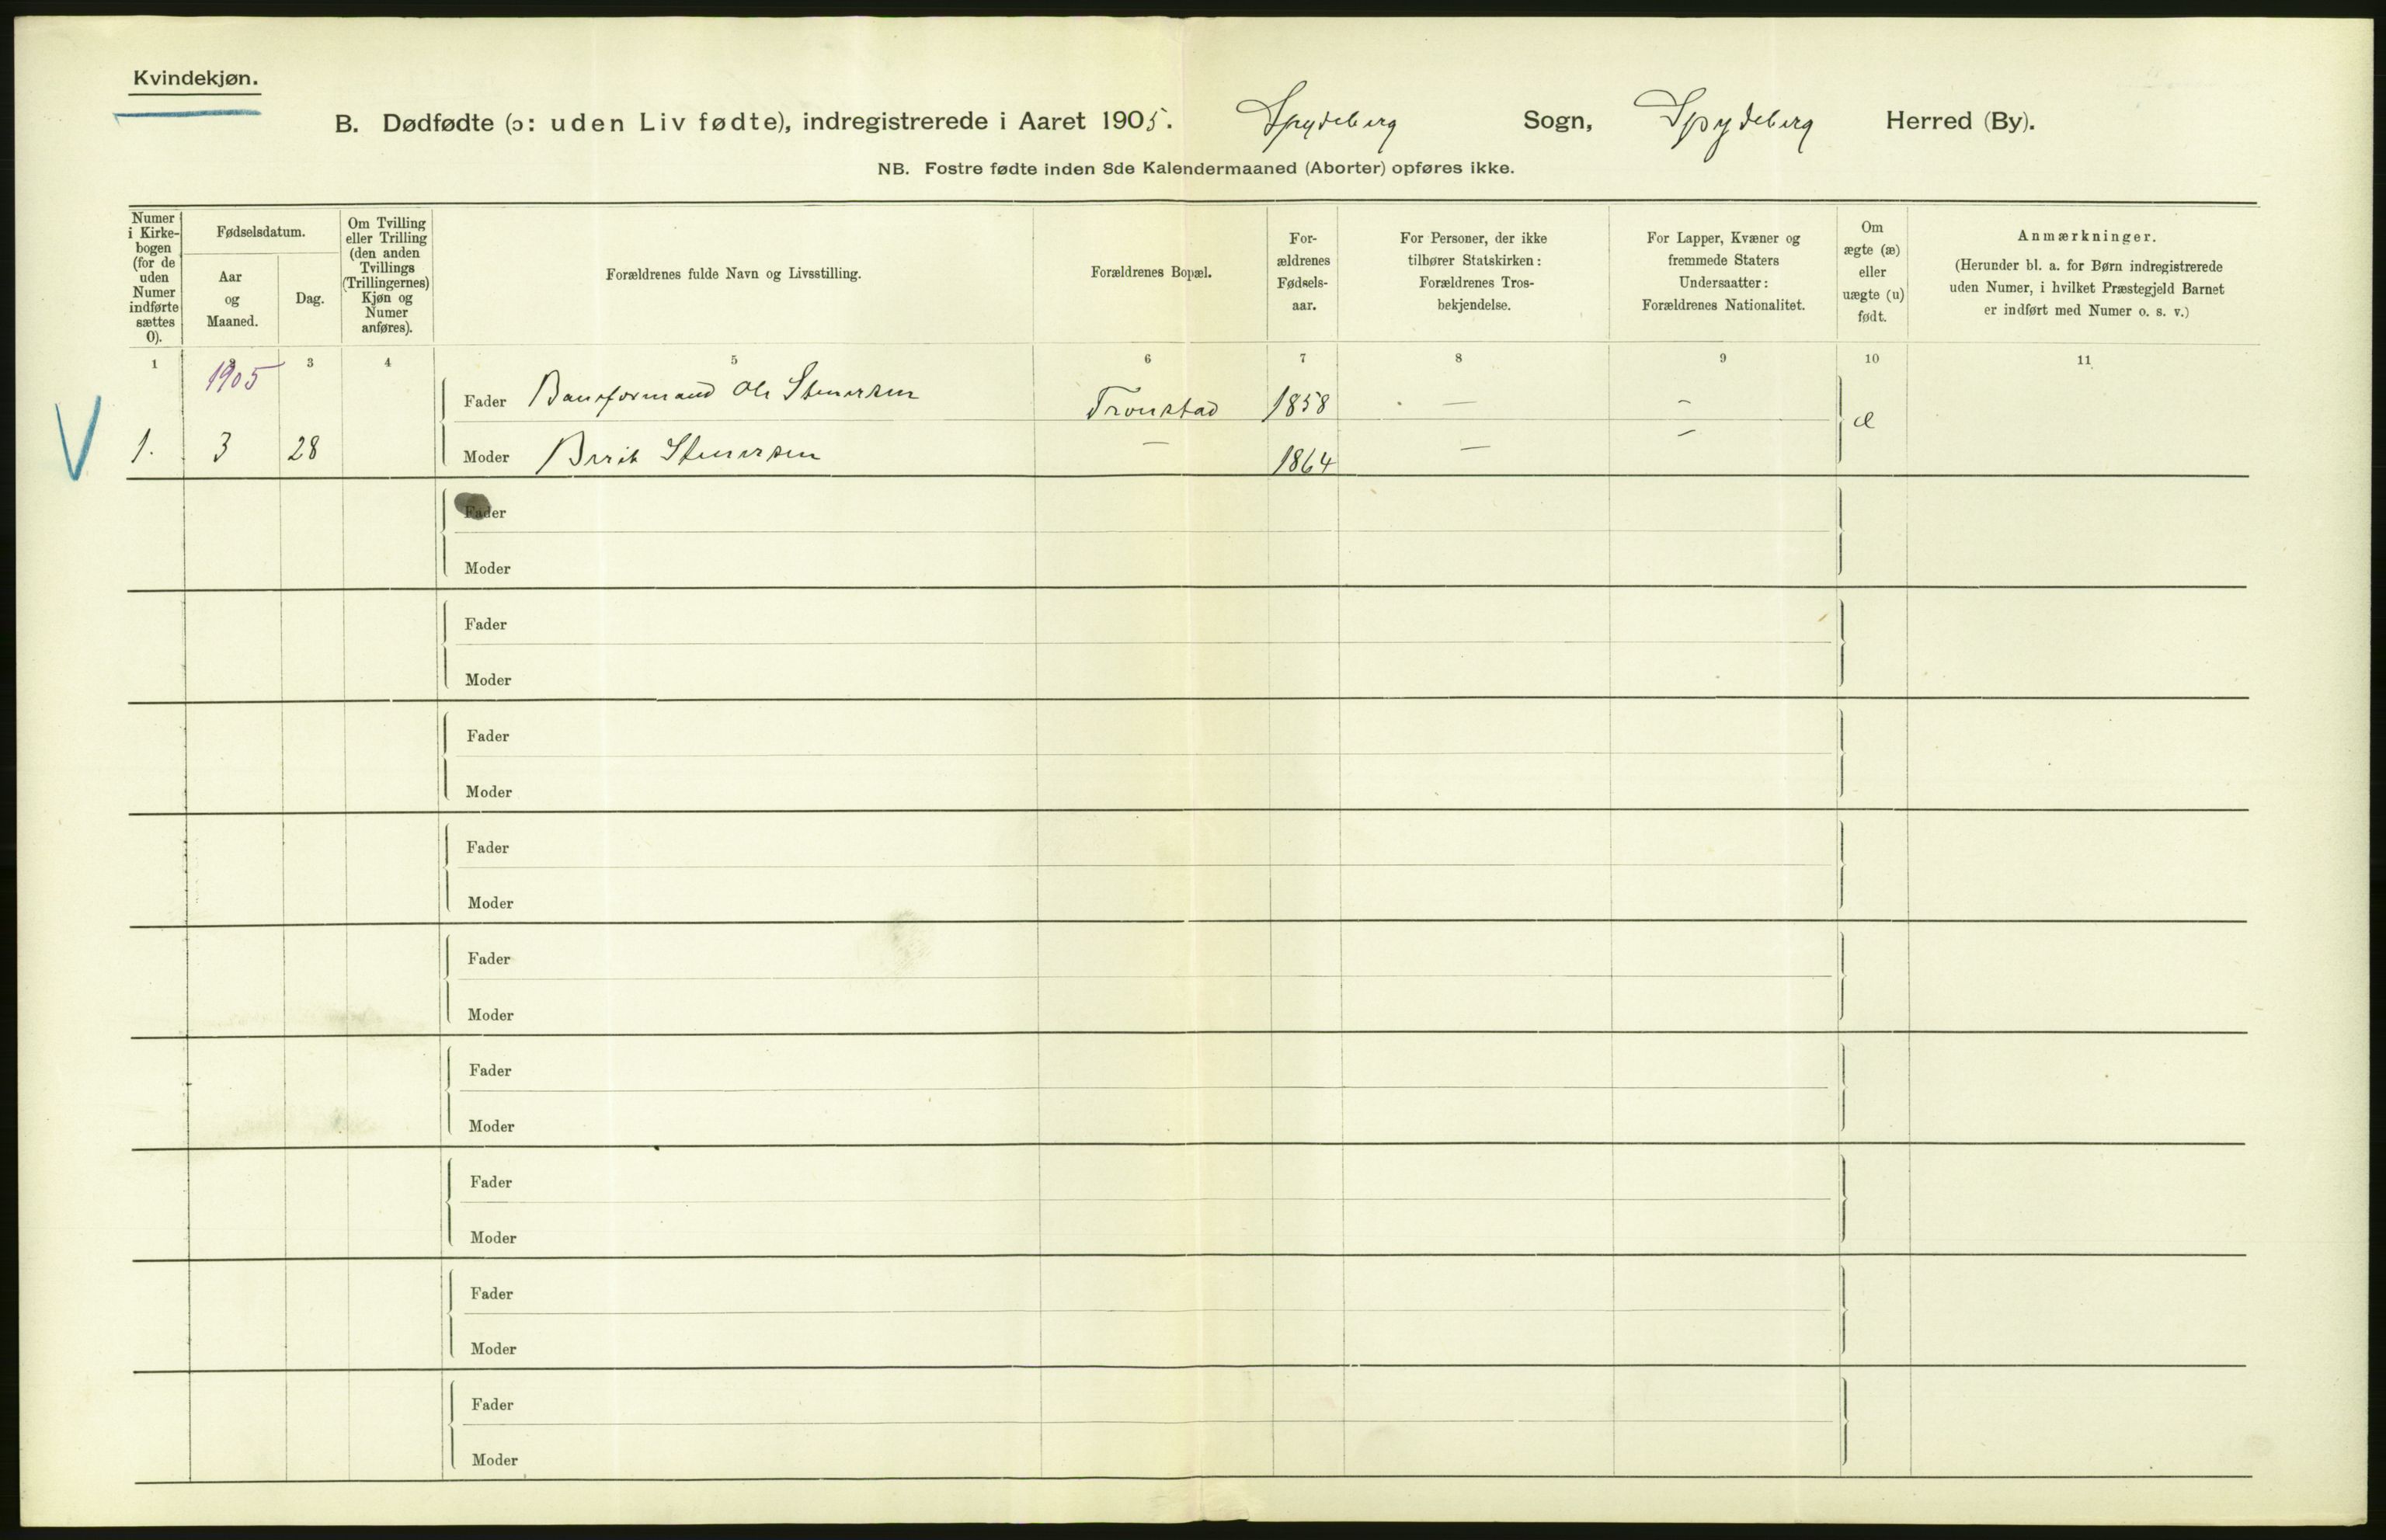 Kvindekjøn.
B. Dødfødte (ɔ: uden Liv fødte), indregistrerede i Aaret 1905. Spydeberg Sogn, Spydeberg Herred (By).
NB. Fostre fødte inden 8de Kalendermaaned (Aborter) opføres ikke.
Numer
i Kirke-
bogen
(for de
uden
Numer
indførte
sættes
0).
Fødselsdatum.
Aar
og
Maaned.
Dag.
Om Tvilling
eller Trilling
(den anden
Tvillings
(Trillingernes)
Kjøn og
Numer
anføres).
Forældrenes fulde Navn og Livsstilling.
Forældrenes Bopæl.
For-
ældrenes
Fødsels-
aar.
For Personer, der ikke
tilhører Statskirken:
Forældrenes Tros-
bekjendelse.
For Lapper, Kvæner og
fremmede Staters
Undersaatter:
Forældrenes Nationalitet.
Om
ægte (æ)
eller
uægte (u)
født.
Anmærkninger.
(Herunder bl. a. for Børn indregistrerede
uden Numer, i hvilket Præstegjeld Barnet
er indført med Numer o. s. v.)
1 2 3 4 5 6 7 8 9 10 11
1905
Fader Baneformand Ole Stenersen Tronstad 1858 — – æ
V 1. 3 28 Moder Berit Stenersen — 1864 — –
Fader
Moder
Fader
Moder
Fader
Moder
Fader
Moder
Fader
Moder
Fader
Moder
Fader
Moder
Fader
Moder
Fader
Moder